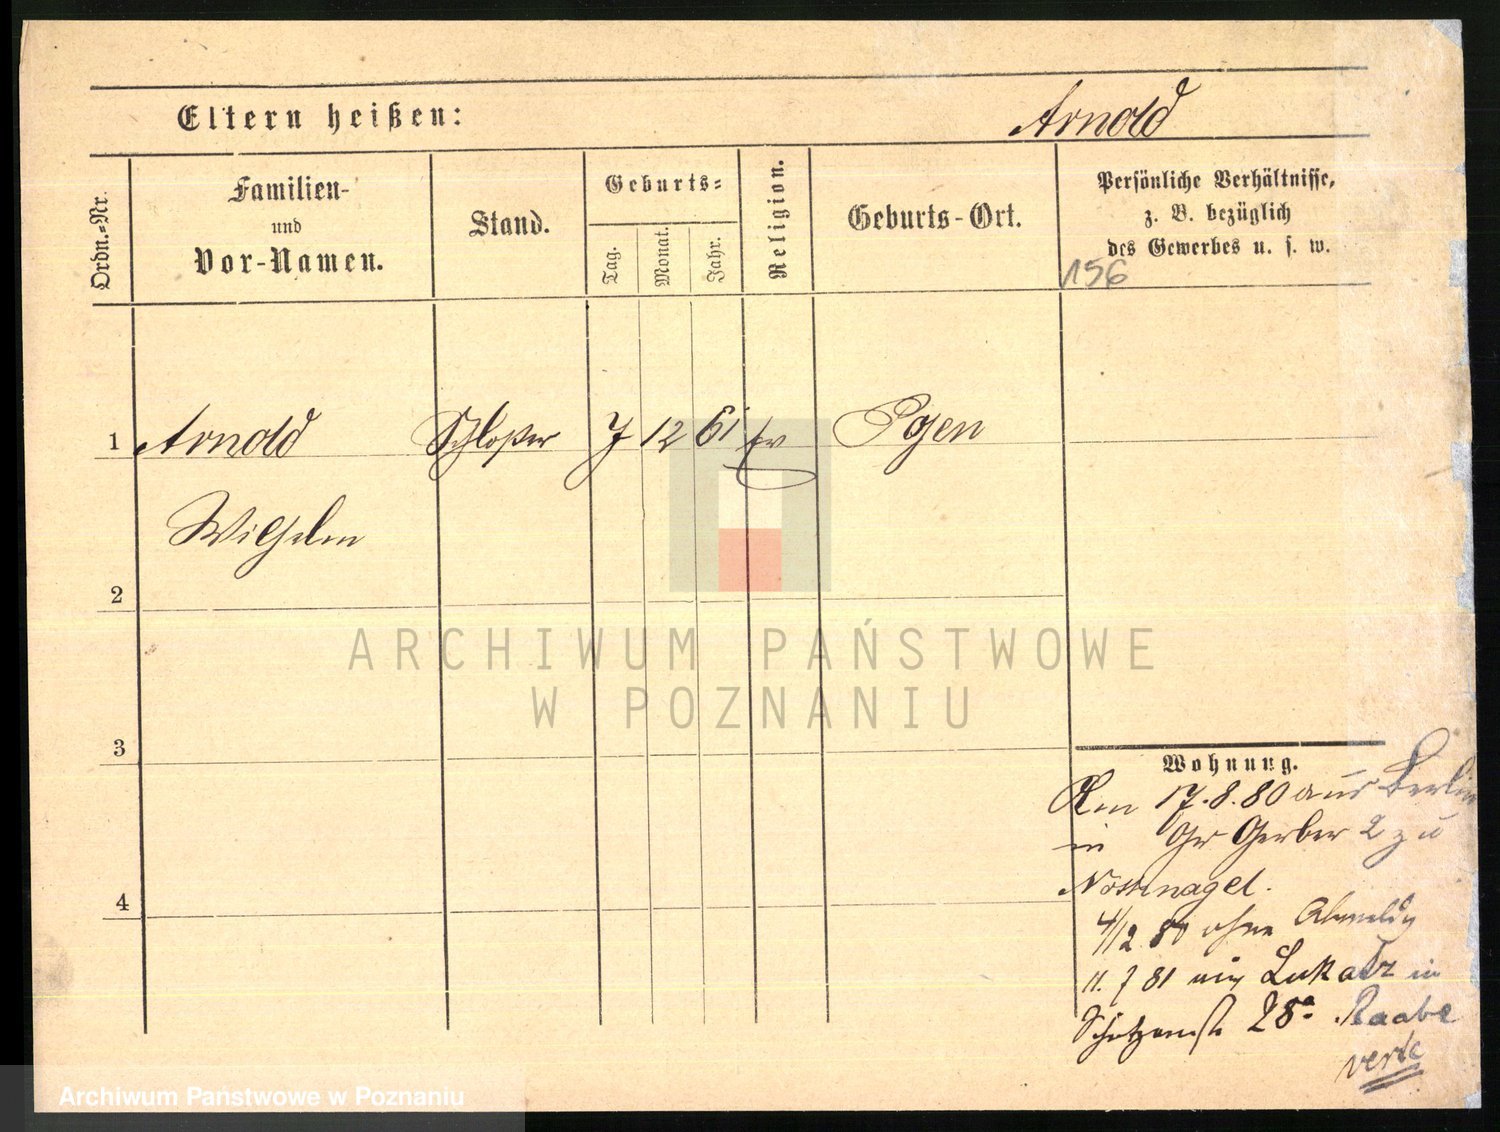 Eltern heißen:
Arnold
Ordn.=Nr.
Familien-
und
Vor-Namen.
Stand.
Geburts=
Tag.
Monat.
Jahr.
Religion.
Geburts-Ort.
Persönliche Verhältnisse,
z. B. bezüglich
des Gewerbes u. s. w.
156
1 Arnold Schlosser 7 12 61 Ev Posen
Wilhelm
2
ARCHIWUM PAŃSTWOWE
W POZNANIU
3
Wohnung.
Am 17.8.80 aus Berlin
in Gr Gerber 2 zu
Nothnagel.
4
4/12 80 ohne Abmeldg
11.7 81 Lukatz in
Schützenstr 28a Raabe
verte
Archiwum Państwowe w Poznaniu